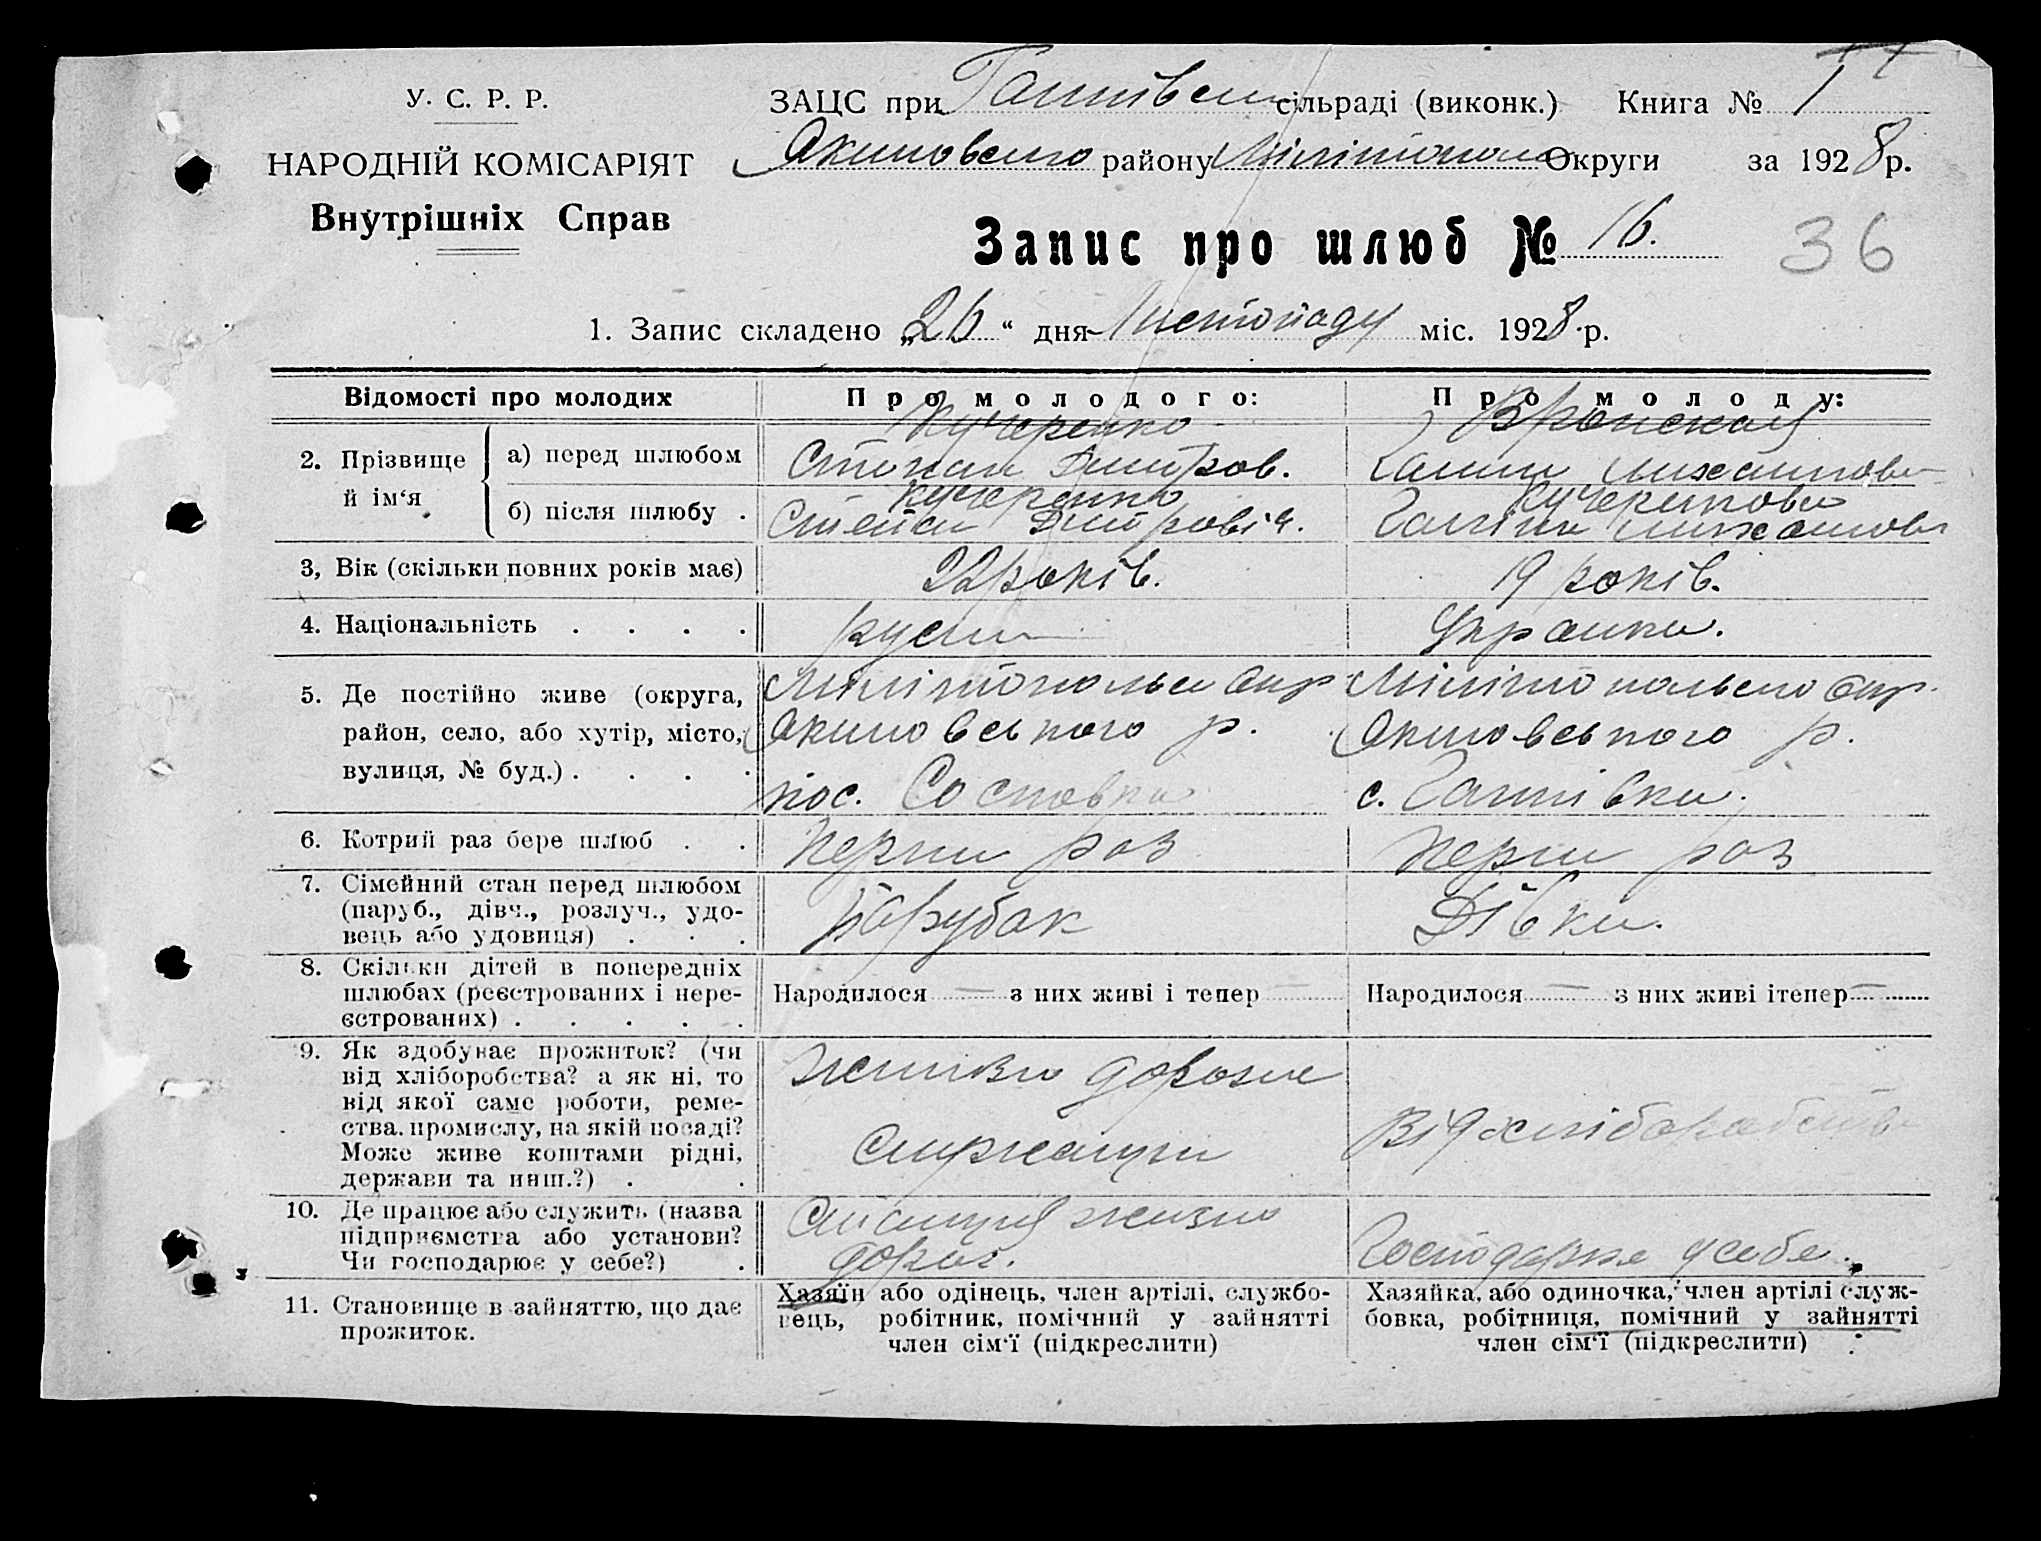 У. С. Р. Р.
НАРОДНІЙ КОМІСАРІЯТ
Внутрішніх Справ
ЗАЦС при Ганнівськ сільраді (виконк.) Книга № I
Якимовсько району Мілітопол Округи за 1928 р.
Запис про шлюб № 16.
36
1. Запис складено „26“ дня Листопаду міс. 1928 р.
Відомості про молодих
Про молодого:
Про молоду:
2. Прізвище й ім‘я
а) перед шлюбом
Кучеренко
Степан Дмитров.
Вронская
Ганна Михайлов
б) після шлюбу .
Кучеренко
Степан Дмитровіч.
Кучеренкова
Михайлов
3, Вік (скільки повних років має)
22 років.
19 років.
4. Національність . . . .
руск
Украінка.
5. Де постійно живе (округа,
район, село, або хутір, місто,
вулиця, № буд.) . . . .
Мілітопольск Окр
Якимовського р.
пос. Сосновка
Мілітопольско Окр.
Якимовського р.
с. Ганнівка.
6. Котрий раз бере шлюб . .
Перши раз
Перши раз
7. Сімейний стан перед шлюбом
(паруб., дівч., розлуч., удо-
вець або удовиця) . . .
Парубак
Дівка.
8. Скільки дітей в попередніх
шлюбах (реєстрованих і нере-
єстрованих) . . . . .
Народилося — з них живі і тепер —
Народилося — з них живі ітепер —
9. Як здобуває прожиток? (чи
від хліборобства? а як ні, то
від якої саме роботи, реме-
ства, промислу, на якій посаді?
Може живе коштами рідні,
держави та инш.?) . .
дорозі
Від хліборобств
10. Де працює або служить (назва
підприємства або установи?
Чи господарює у себе?) .
Станция
дорог.
Господарка у себе.
11. Становище в зайняттю, що дає
прожиток.
Хазяїн або одінець, член артілі, службо-
вець, робітник, помічний у зайнятті
член сім‘ї (підкреслити)
Хазяйка, або одиночка, член артілі служ-
бовка, робітниця, помічний у зайнятті
член сім‘ї (підкреслити)